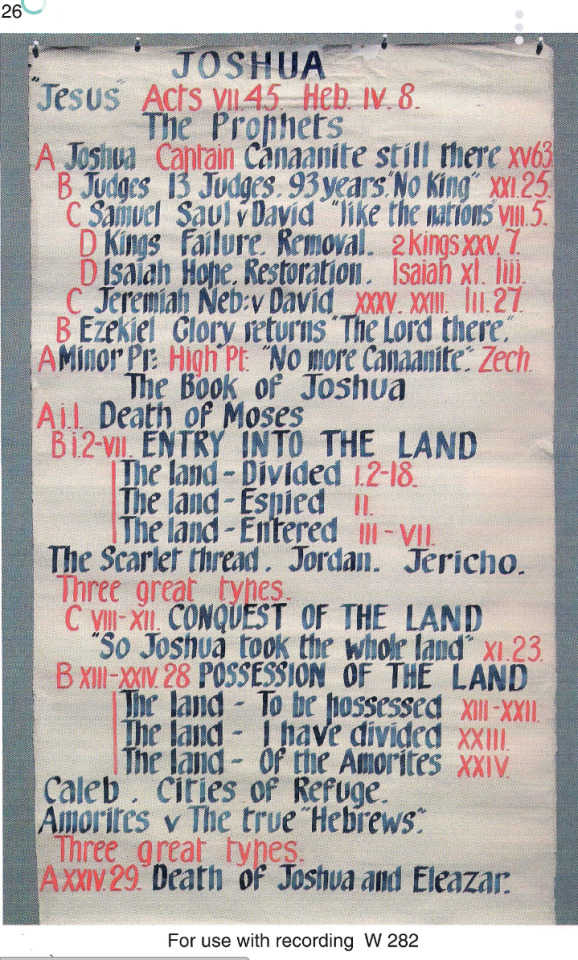 26
JOSHUA
"Jesus" Acts VII.45. Heb. IV. 8.
The Prophets
A Joshua Captain Canaanite still there XV63.
B Judges 13 Judges. 93 years. "No King" XXI.25.
C Samuel Saul v David "like the nations" VIII.5.
D Kings Failure. Removal. 2 Kings XXV. 7.
D Isaiah Hope. Restoration. Isaiah XI. liii.
C Jeremiah Neb: v David XXXV. XXIII. III.27.
B Ezekiel Glory returns "The Lord there."
A Minor Pr: High Pt: "No more Canaanite". Zech.
The Book of Joshua
A i.1. Death of Moses
B i.2-VII. ENTRY INTO THE LAND
The land - Divided I.2-18.
The land - Espied II.
The land - Entered III - VII.
The Scarlet thread. Jordan. Jericho.
Three great types.
C VIII-XII. CONQUEST OF THE LAND
"So Joshua took the whole land" XI.23.
B XIII-XXIV.28 POSSESSION OF THE LAND
The land - To be possessed XIII-XXII.
The land - I have divided XXIII.
The land - Of the Amorites XXIV.
Caleb. Cities of Refuge.
Amorites v The true "Hebrews".
Three great types.
A XXIV.29. Death of Joshua and Eleazar.
For use with recording W 282